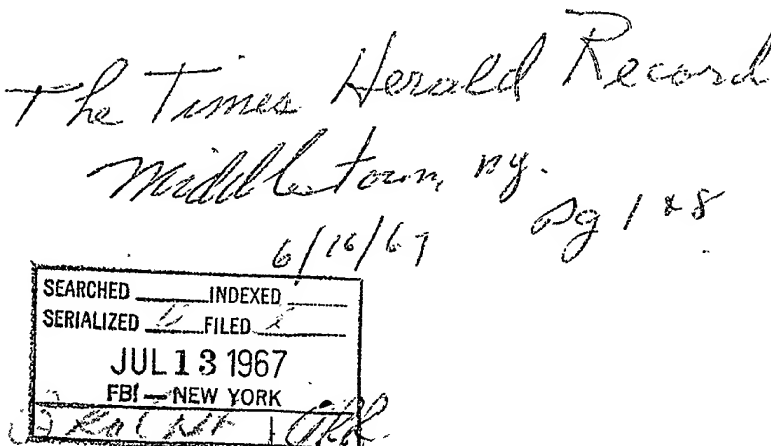 The Times Herald Record
Middletown, ny.
pg 1 & 8
6/16/67
SEARCHED INDEXED
SERIALIZED FILED
JUL 13 1967
FBI — NEW YORK